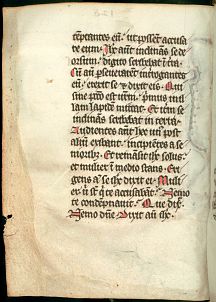 temptantes eū. ut possent accusa
re eum. Ihc aūt inclināns se de
orsum. digito scribebat i tra.
Cū aūt pseverarent interrogantes
eum. erexit se & dixit eis. Qui
sine pctō est urm. primus in il
lam lapidē mittat. Et iterū se
inclināns scribebat in terra.
Audientes aūt hec unº post
aliū exibant. incipiētes a se
niorbȝ. Et remansit ihc solus.
et mulier ī medio stans. Eri
gens aūt se ihc dixit ei. Muli
er. ubi st qi te accusabāt. Nemo
te condēpnavit. Que dix.
Nemo dñe. Dixit aū ihc.